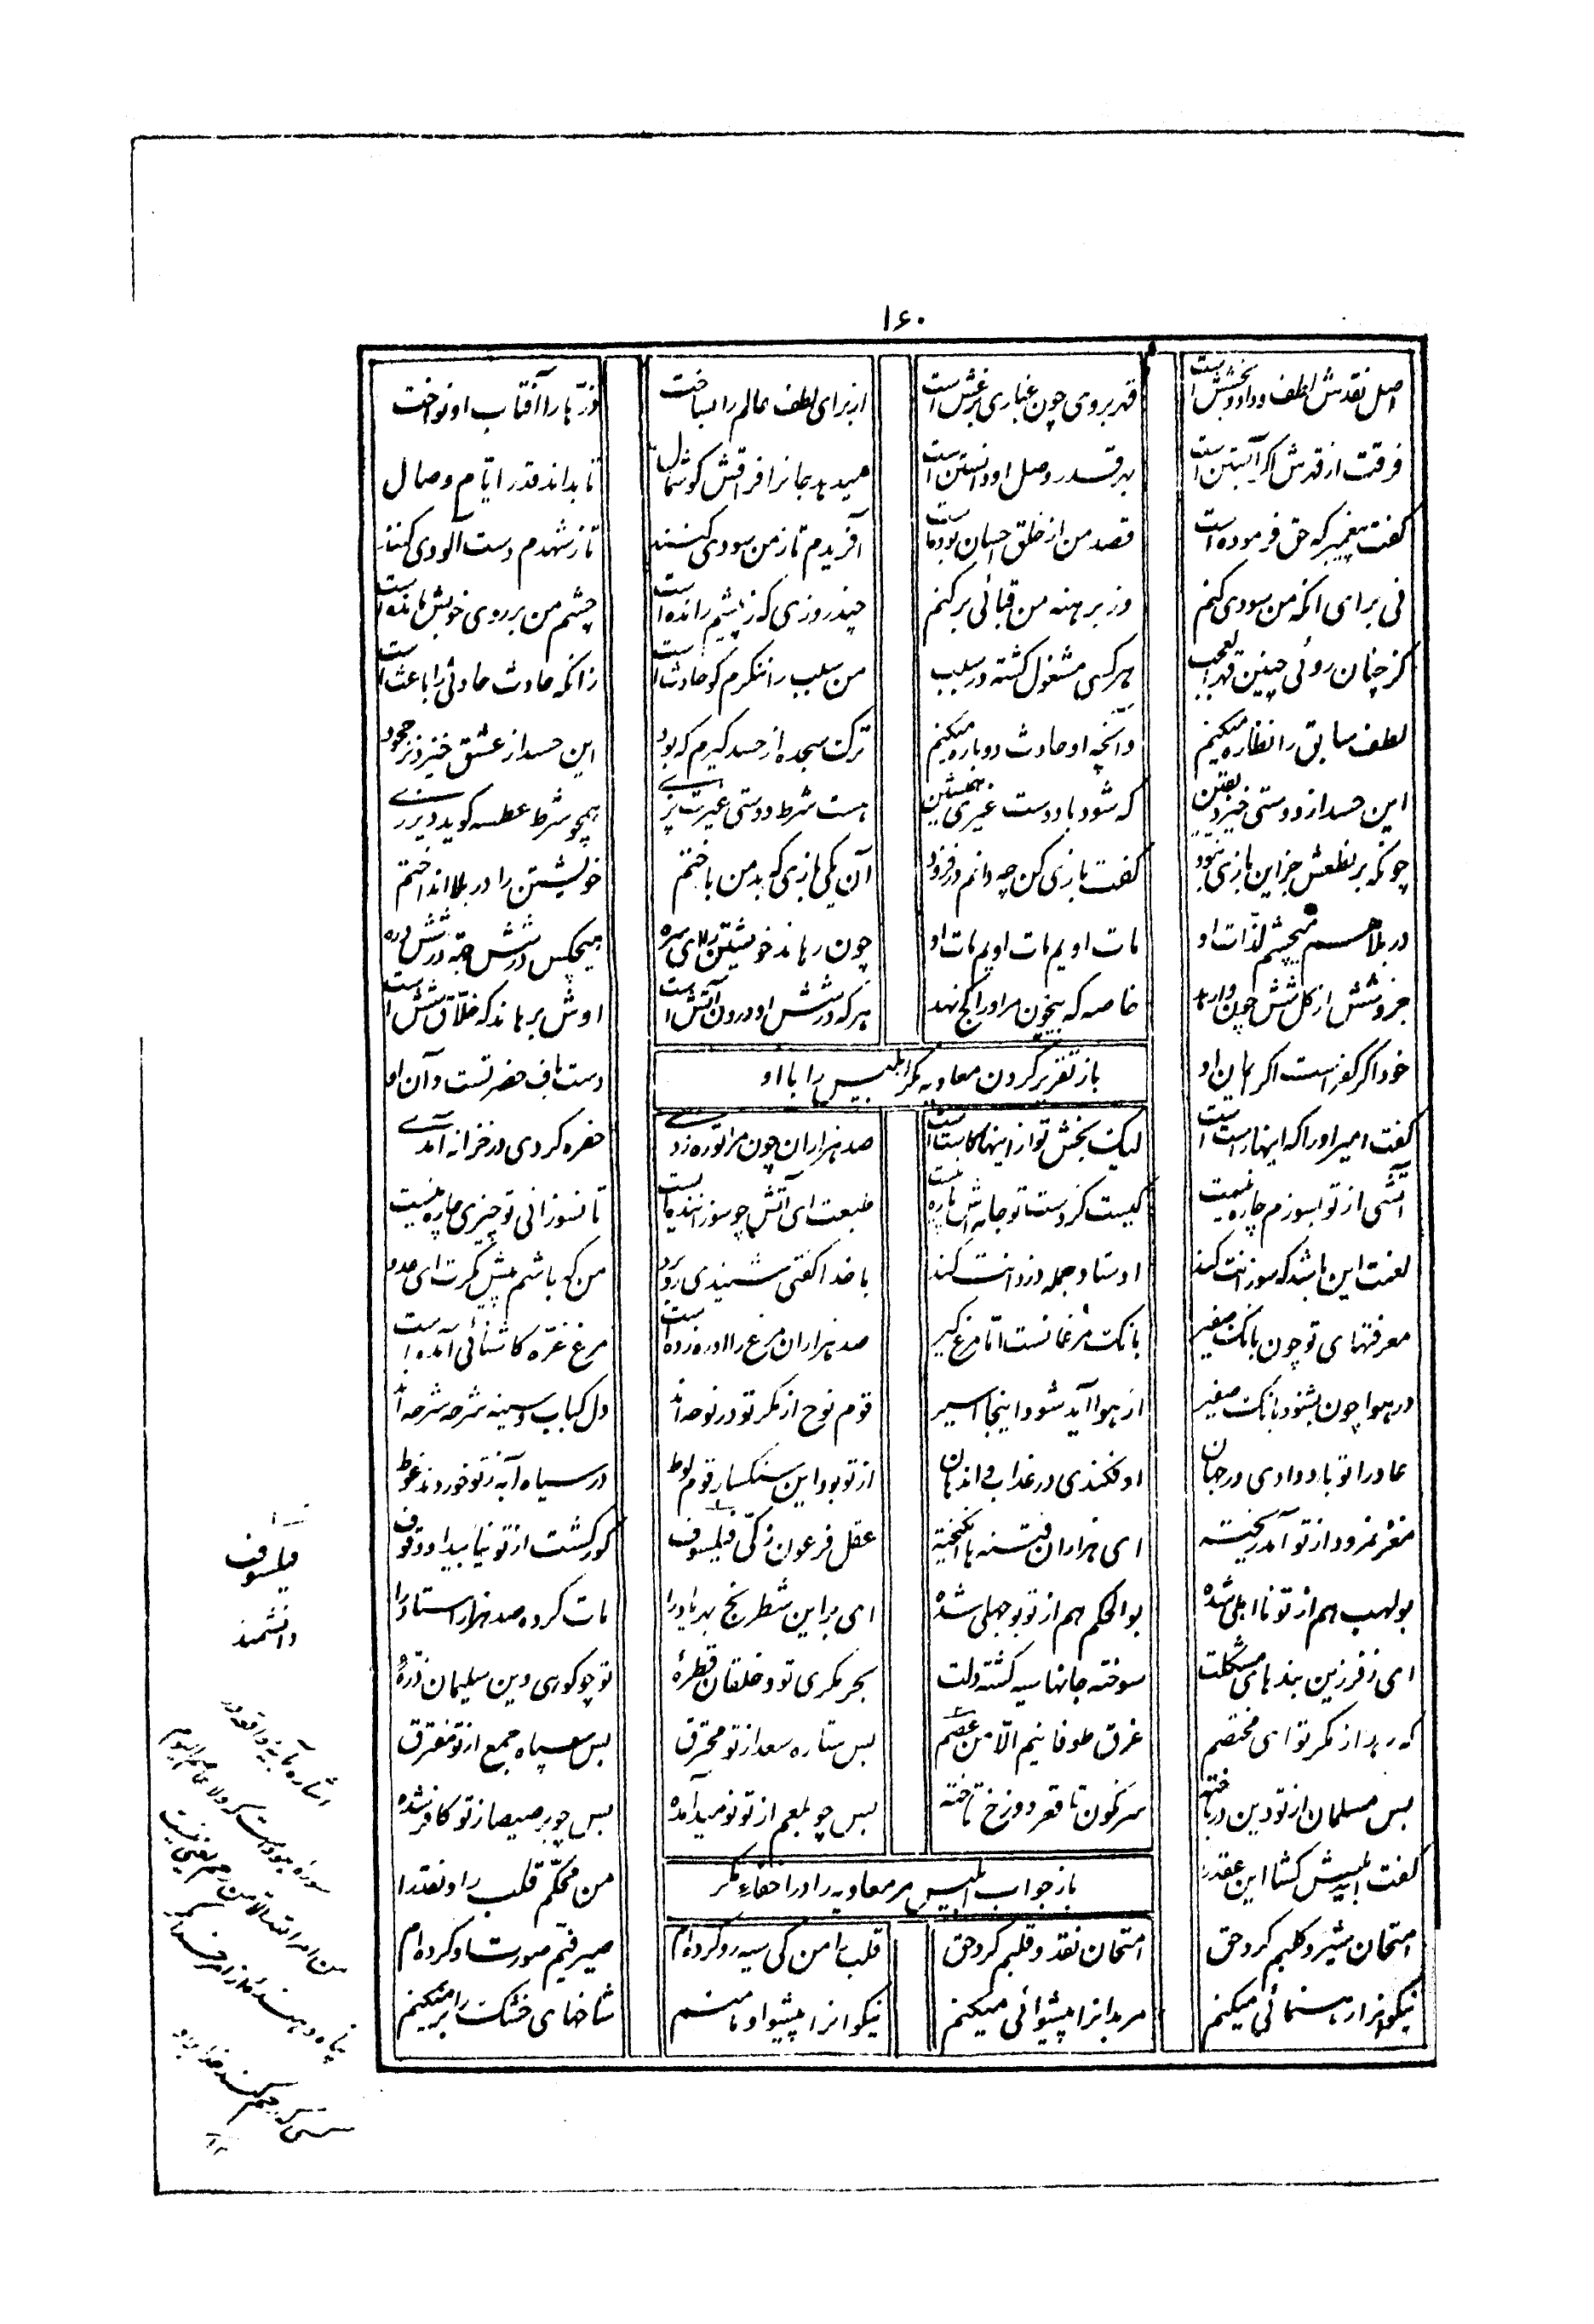 ۱۶۰
اصل نقدش لطف و داد و بخشش است قهر بروی چون غباری از غش است از برای لطف عالم را بساخت ذرّها را آفتاب او نواخت
فرقت از قهرش اگر آبستن است بهر قدر وصل او دانستن است میدهد جانرا فراقش گوشمال تا بداند قدر ایّام وصال
گفت پیغمبر که حق فرموده است قصد من از خلق احسان بوده است آفریدم تا ز من سودی کنند تا ز شهدم دست آلودی کنند
نی برای انکه من سودی کنم وز برهنه من قبائی برکنم چند روزی که ز پیشم رانده است چشم من بر روی خوبش مانده است
کز چنان روئی چنین قهر ای عجب هر کسی مشغول گشته در سبب من سبب را ننگرم کو حادث است زانکه حادث حادثی را باعث است
لطف سابق را نظاره میکنم وانچه او حادث دوپاره میکنم ترک سجده از حسد گیرم که بود این حسد از عشق خیزد نز جحود
این حسد از دوستی خیزد یقین که شود با دوست غیری همنشین هست شرط دوستی غیرت پزی همچو شرط عطسه گوید دیر زی
چونکه بر نطعش جز این بازی نبود گفت بازی کن چه دانم در فزود آن یکی بازی که بد من باختم خویشتن را در بلا انداختم
در بلا هم میچشم لذّات او مات اویم مات اویم مات او چون رهاند خویشتن را ای سره هیچکس در شش جهت در ششدره
جزو شش از کل شش چون وارهد خاصه که بیچون مر او را کج نهد هر که در شش او درون آتش است اوش برهاند که خلّاق شش است
خود اگر کفرست اگر ایمان او دست باف حضرتست و آن او
باز تقریر کردن معاویه مکر ابلیس را با او
گفت امیر او را که اینها راست است لیک بخش تو از اینها کاست است صد هزاران چون مرا تو ره زدی حفره کردی در خزانه آمدی
آتشی از تو بسوزم چاره نیست کیست کز دست تو جامه‌اش پاره نیست طبعت ای آتش چو سوزانیدنیست تا نسوزانی تو چیزی چاره نیست
لعنت این باشد که سوزانت کند اوستاد جمله دزدانت کند با خدا گفتی شنیدی روبرو من که باشم پیش مکرت ای عدو
معرفتهای تو چون بانک صفیر بانک مرغانست امّا مرغ گیر صد هزاران مرغ را او ره زده است مرغ غرّه کاشنائی آمده است
در هوا چون بشنود بانک صفیر از هوا آید شود اینجا اسیر قوم نوح از مکر تو در نوحه‌اند دل کباب و سینه شرحه شرحه‌اند
عاد را تو باد دادی در جهان اوفکندی در عذاب و اندهان از تو بود این سنگسار قوم لوط در سیاه آبه ز تو خوردند غوط
مغز نمرود از تو آمد ریخته ای هزاران فتنه‌ها انگیخته عقل فرعون زکّی فیلسوف کور گشت از تو نیابید او وقوف
بولهب هم از تو نااهلی شده بوالحکم هم از تو بوجهلی شده ای بر این شطرنج بهر یاد را مات کرده صد هزار استاد را
ای ز فرزین بندهای مشکلت سوخته جانها سیه گشته دلت بحر مکری تو و خلقان قطرهٔ تو چو کوهی وین سلیمان ذرّهٔ
که رهد از مکر تو ای مختصم غرق طوفانیم الّا من عصم بس ستاره سعد از تو محترق بس سپاه جمع از تو مفترق
بس مسلمان از تو دین درباخته سرنگون تا قعر دوزخ تاخته بس چو بلعم از تو نومید آمده بس چو برصیصا ز تو کافر شده
گفت ابلیسش گشا این عقد را من محکّم قلب را و نقد را
باز جواب ابلیس مر معاویه را در اخفاء مکر
امتحان شیر و کلبم کرد حق امتحان نقد و قلبم کرد حق قلب را من کی سیه رو کرده‌ام صیرفیم صورت او کرده‌ام
نیکوانرا رهنمائی میکنم مر بدانرا پیشوائی میکنم نیکوانرا پیشوا و مأمنم شاخهای خشک را برمیکنم
فیلسوف
دانشمند